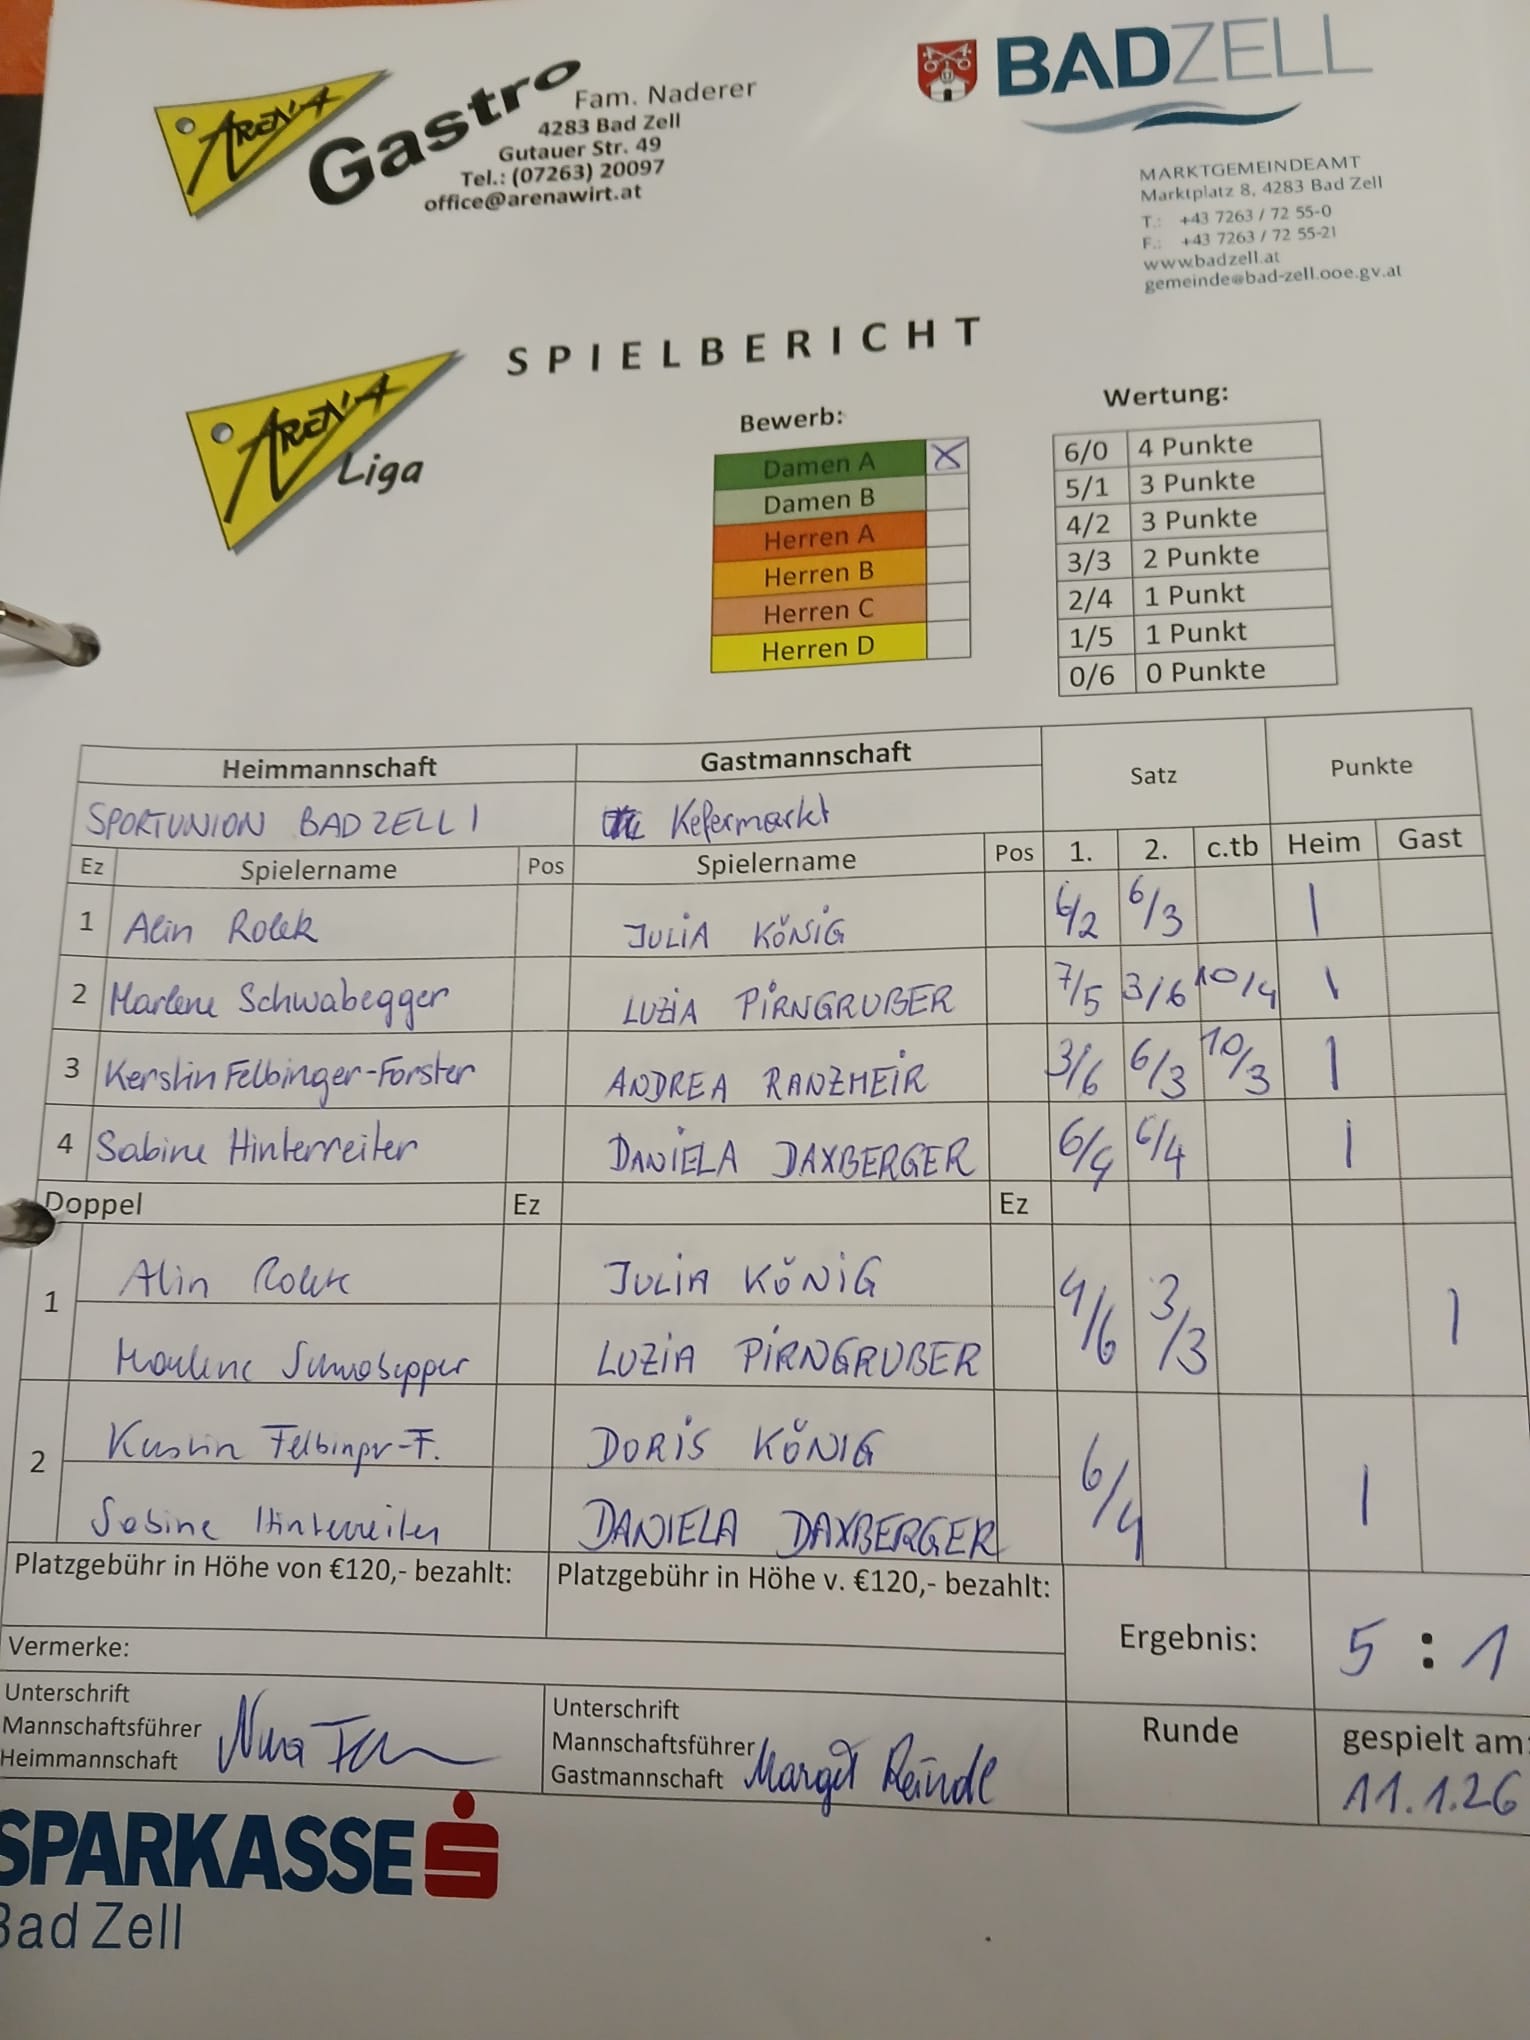 ARENA Gastro
Fam. Naderer
4283 Bad Zell
Gutauer Str. 49
Tel.: (07263) 20097
office@arenawirt.at
BADZELL
MARKTGEMEINDEAMT
Marktplatz 8, 4283 Bad Zell
T.: +43 7263 / 72 55-0
F.: +43 7263 / 72 55-21
www.badzell.at
gemeinde@bad-zell.ooe.gv.at
ARENA Liga
SPIELBERICHT
Bewerb:
Damen A X
Damen B
Herren A
Herren B
Herren C
Herren D
Wertung:
6/0 4 Punkte
5/1 3 Punkte
4/2 3 Punkte
3/3 2 Punkte
2/4 1 Punkt
1/5 1 Punkt
0/6 0 Punkte
Heimmannschaft Gastmannschaft Satz Punkte
SPORTUNION BAD ZELL 1 Kefermarkt
Ez Spielername Pos Spielername Pos 1. 2. c.tb Heim Gast
1 Alin JULIA KÖNIG 6/2 6/3 1
2 Marlene Schwabegger LUZIA PIRNGRUBER 7/5 3/6 10/4 1
3 Kerstin Felbinger-Forster ANDREA RANZMEIR 3/6 6/3 10/3 1
4 Sabine Hinterreiter DANIELA DAXBERGER 6/4 6/4 1
Doppel Ez Ez
1 Alin JULIA KÖNIG 4/6 3/3 1
Marlene Schwabegger LUZIA PIRNGRUBER
2 Kerstin Felbinger-F. DORIS KÖNIG 6/4 1
Sabine Hinterreiter DANIELA DAXBERGER
Platzgebühr in Höhe von €120,- bezahlt: Platzgebühr in Höhe v. €120,- bezahlt:
Ergebnis: 5 : 1
Vermerke:
Unterschrift
Mannschaftsführer
Heimmannschaft
Unterschrift
Mannschaftsführer
Gastmannschaft Margit
Runde gespielt am:
11.1.26
SPARKASSE
Bad Zell